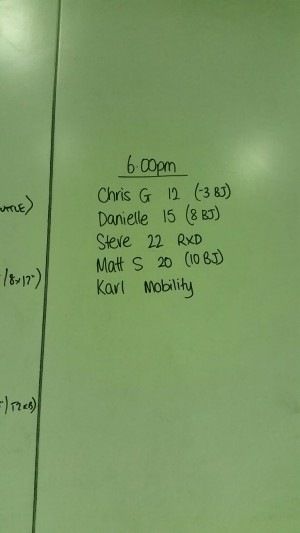 6:00pm
Chris G 12 (-3 BJ)
Danielle 15 (8 BJ)
Steve 22 RXD
Matt S 20 (10 BJ)
Karl Mobility